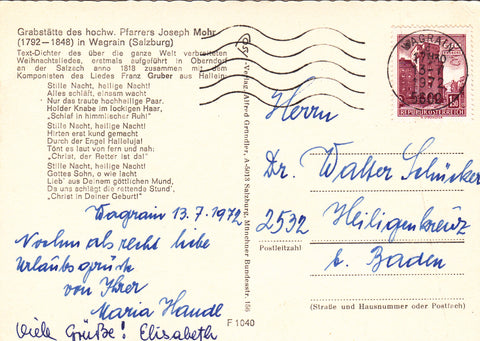 Grabstätte des hochw. Pfarrers Joseph Mohr
(1792—1848) in Wagrain (Salzburg)
Text-Dichter des über die ganze Welt verbreiteten
Weihnachtsliedes, erstmals aufgeführt in Oberndorf
an der Salzach anno 1818 zusammen mit dem
Komponisten des Liedes Franz Gruber aus Hallein:
Stille Nacht, heilige Nacht!
Alles schläft, einsam wacht
Nur das traute hochheilige Paar.
Holder Knabe im lockigen Haar,
„Schlaf in himmlischer Ruh!"
Stille Nacht, heilige Nacht!
Hirten erst kund gemacht
Durch der Engel Halleluja!
Tönt es laut von fern und nah:
„Christ, der Retter ist da!"
Stille Nacht, heilige Nacht!
Gottes Sohn, o wie lacht
Lieb' aus Deinem göttlichen Mund,
Da uns schlägt die rettende Stund',
„Christ in Deiner Geburt!"
Wagrain 13.7.1972
Nochmals recht liebe
Urlaubsgrüße
von Ihrer
Maria Handl
Viele Grüße! Elisabeth
Verlag Alfred Gründler, A-5013 Salzburg, Münchner Bundesstr. 156
F 1040
WAGRAIN
5600
REPUBLIK ÖSTERREICH
Herrn
Dr. Walter Schücker
2532 Heiligenkreuz
b. Baden
Postleitzahl
(Straße und Hausnummer oder Postfach)